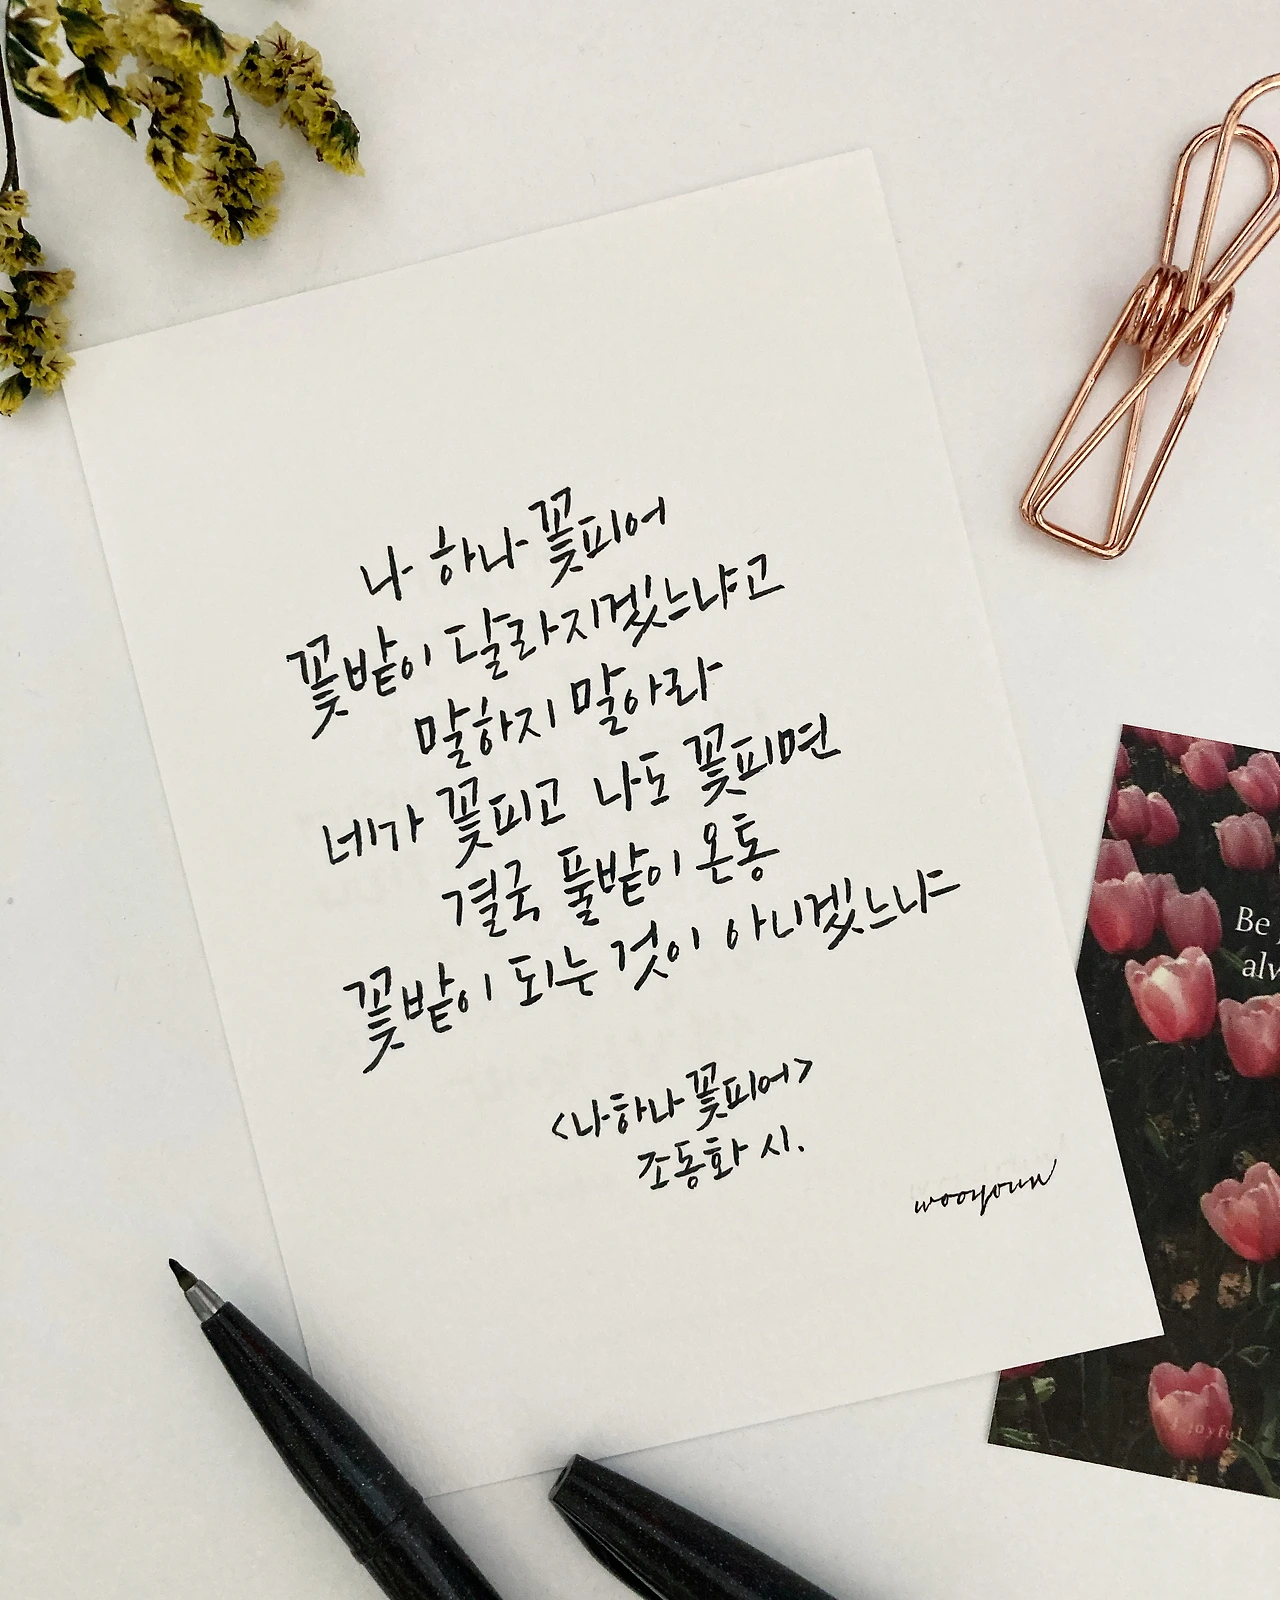 나 하나 꽃피어
꽃밭이 달라지겠느냐고
말하지 말아라
네가 꽃피고 나도 꽃피면
결국 풀밭이 온통
꽃밭이 되는 것이 아니겠느냐
<나 하나 꽃피어>
조동화 시.
wooyoun
Be
joyful